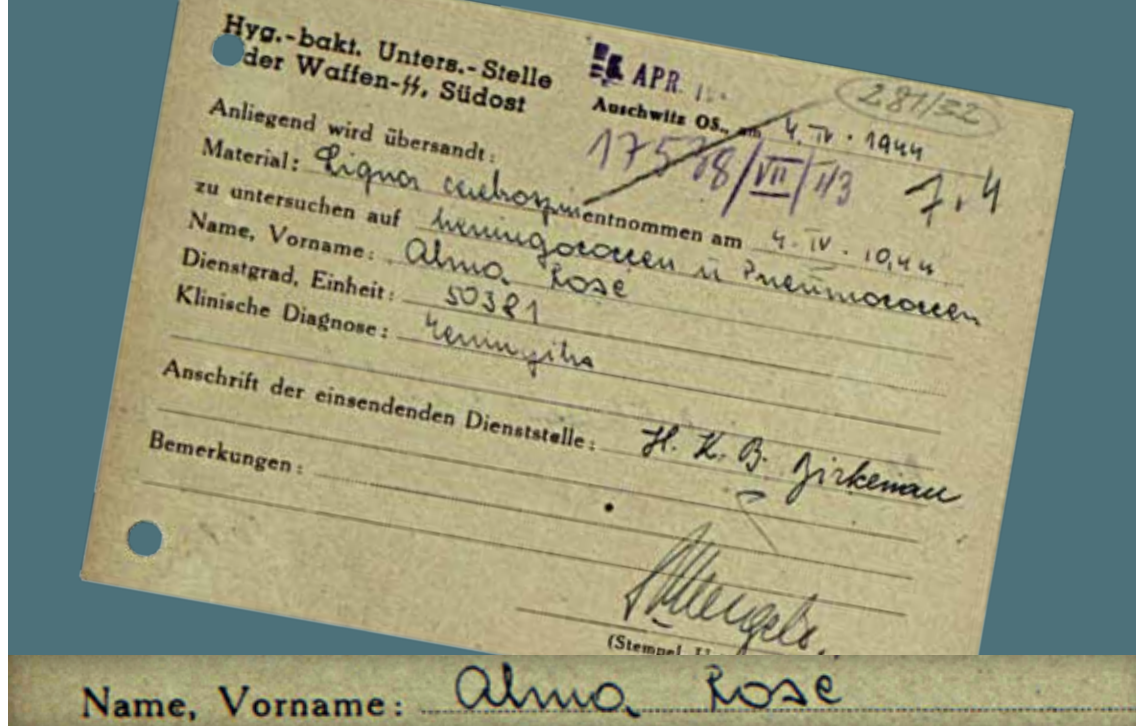 Hyg.-bakt. Unters.-Stelle
der Waffen-SS, Südost
APR.
281/32
Auschwitz OS., am 4. IV. 1944
Anliegend wird übersandt:
17538/VII/113 7.4
Material: Liquor cerebrospin entnommen am 4. IV. 1944
zu untersuchen auf Meningococcen u Pneumococcen
Name, Vorname: Alma Rosé
Dienstgrad, Einheit: 50381
Klinische Diagnose: Meningitis
Anschrift der einsendenden Dienststelle: H. K. B. Birkenau
Bemerkungen:
Mengele
(Stempel
Name, Vorname: Alma Rosé